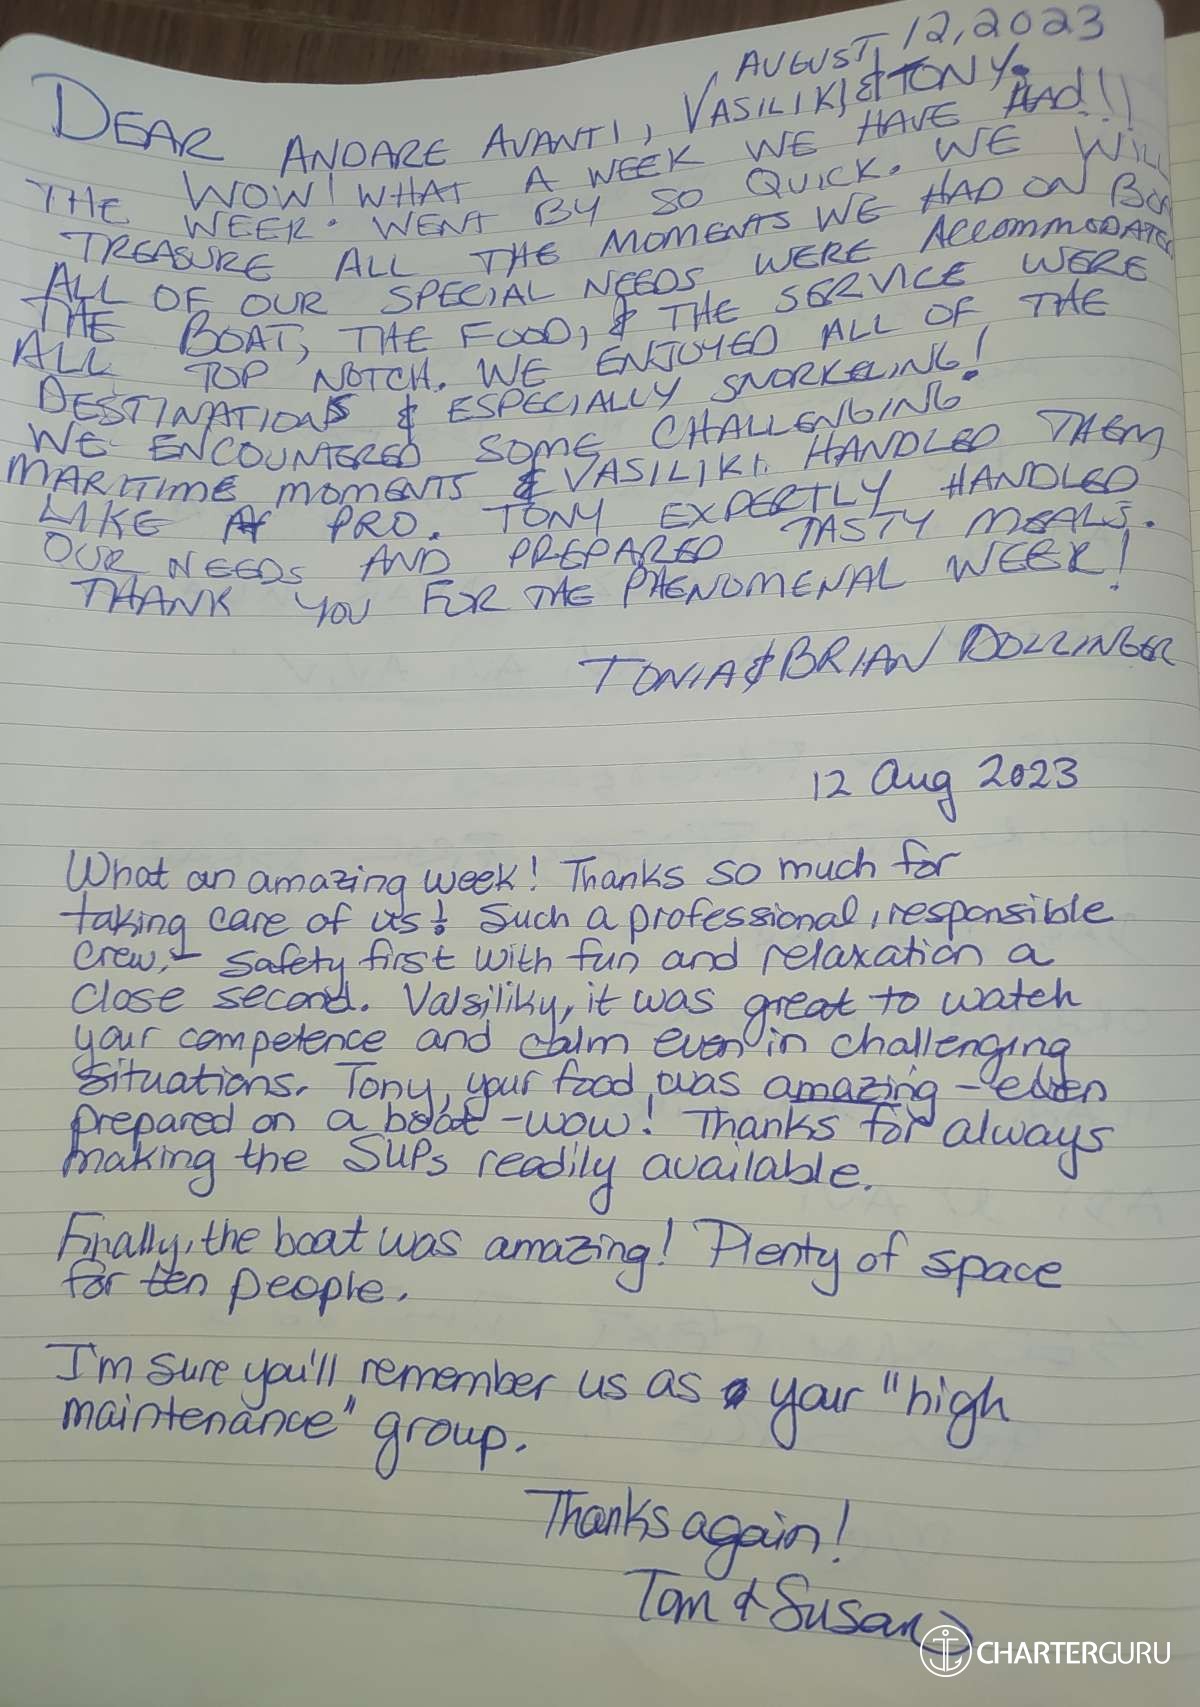 AUGUST, 12, 2023
DEAR ANDARE AVANTI, VASILIKI, & TONY.
WOW! WHAT A WEEK WE HAVE HAD!!
THE WEEK WENT BY SO QUICK. WE WILL
TREASURE ALL THE MOMENTS WE HAD ON
ALL OF OUR SPECIAL NEEDS WERE
THE BOAT, THE FOOD, & THE SERVICE WERE
ALL TOP NOTCH. WE ENJOYED ALL OF THE
DESTINATIONS & ESPECIALLY SNORKELING!
WE ENCOUNTERED SOME CHALLENGING
MARITIME MOMENTS & VASILIKI HANDLED THEM
LIKE A PRO. TONY EXPERTLY HANDLED
OUR NEEDS AND PREPARED TASTY MEALS.
THANK YOU FOR THE PHENOMENAL WEEK!
TONIA & BRIAN
12 Aug 2023
What an amazing week! Thanks so much for
taking care of us! Such a professional, responsible
crew. Safety first with fun and relaxation a
close second. Valsiliky, it was great to watch
your competence and calm even in challenging
situations. Tony, your food was amazing - even
prepared on a boat - wow! Thanks for always
making the SUPs readily available.
Finally, the boat was amazing! Plenty of space
for ten people.
I'm sure you'll remember us as your "high
maintenance" group.
Thanks again!
Tom & Susan
CHARTERGURU